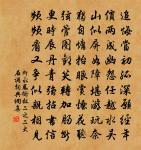 追悔當初孤深願經年
價兩成幽怨任越水吳
山似屏如障堪遊玩奈
獨自慵擡眼賞煙花聽
絃管圖歡笑轉加腸斷
更時展丹青強拈書信
頻頻看又爭似親相見
柳永鳳銜杯二之二大
石調